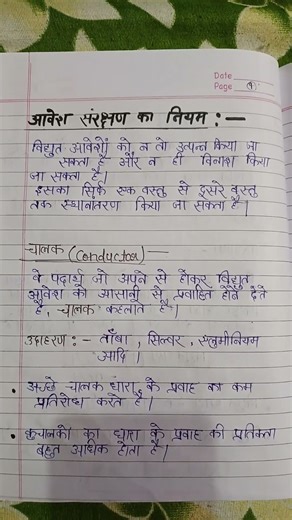 Date
Page
आवेश संरक्षण का नियम : —
विद्युत आवेशों को न तो उत्पन्न किया जा
सकता है और न ही विनाश किया
जा सकता है।
इसका सिर्फ एक वस्तु से दूसरे वस्तु
तक स्थानांतरण किया जा सकता है।
चालक (Conductor)
वे पदार्थ जो अपने से होकर विद्युत
आवेश को आसानी से प्रवाहित होने देते
हैं, चालक कहलाते हैं।
उदाहरण : - ताँबा, सिल्वर, एलुमीनियम
आदि।
• अच्छे चालक धारा के प्रवाह का कम
प्रतिरोध करते हैं।
• कुचालकों का धारा के प्रवाह की
बहुत अधिक होता है।